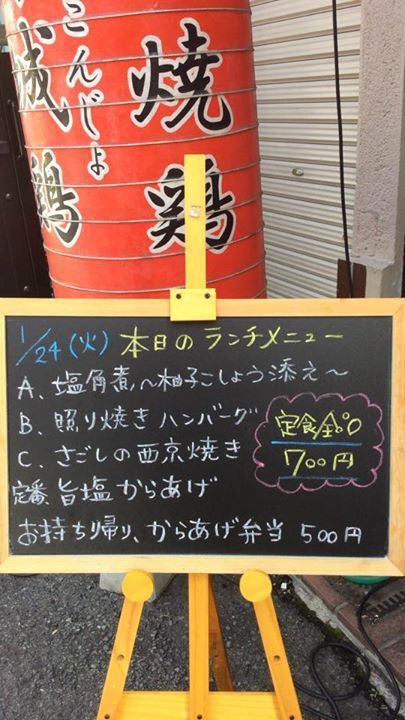 城鶏
こんじょ
焼鶏
1/24(火) 本日のランチメニュー
A、塩角煮〜柚子こしょう添え〜
B、照り焼きハンバーグ
C、さごしの西京焼き
定番、旨塩からあげ
定食全品
700円
お持ち帰り、からあげ弁当 500円